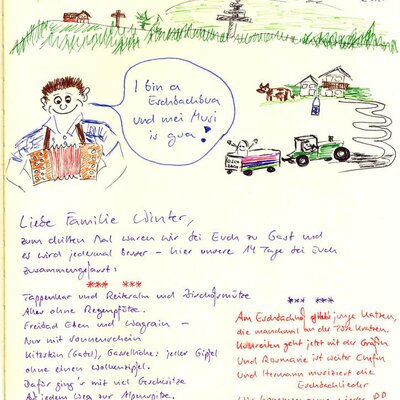 I bin a
Eschbachbua
und mei Musi
is gua!
Liebe Familie Winter,
zum dritten Mal waren wir bei Euch zu Gast und
es wird jedesmal besser - hier unsere 14 Tage bei Euch
zusammengefasst:
*** ***
Tappenkar und Reiteralm und Bischofsmütze
Alles ohne Regenpfütze.
Freibad Eben und Wagrain -
Nur mit Sonnenschein
Kitzstein (Gabel), Gasselhöhe: jeder Gipfel
ohne einen Wolkenzipfel.
Dafür ging's mit viel Geschwitze
Auf jedem Weg zur Alpenspitze.
*** ***
Am Eschbachhof gibt's junge Katzen,
die manchmal an der Türe kratzen.
Kuhreiten geht jetzt mit der Gräfin
Und Rosmarie ist weiter Chefin
Und Hermann musiziert die
Eschbachlieder